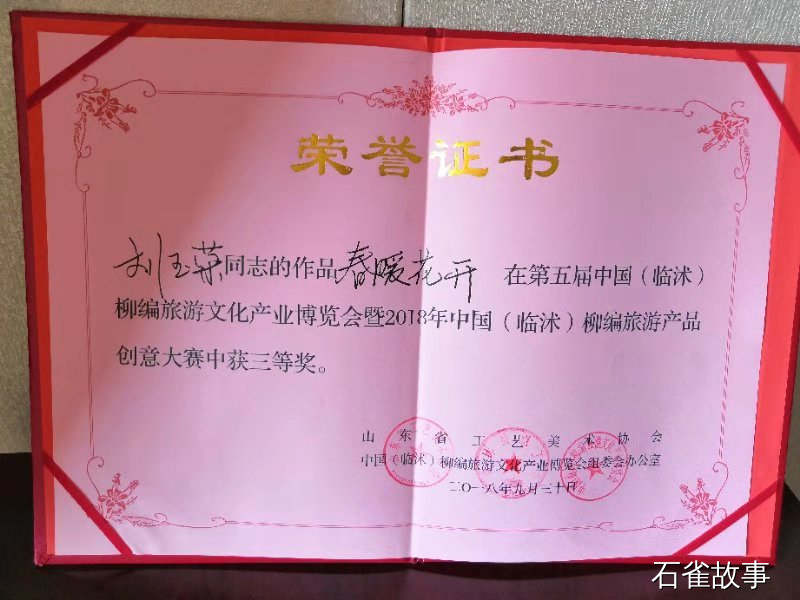 荣誉证书
刘玉荣同志的作品春暖花开 在第五届中国（临沭）
柳编旅游文化产业博览会暨2018年中国（临沭）柳编旅游产品
创意大赛中获三等奖。
山东省工艺美术协会
中国（临沭）柳编旅游文化产业博览会组委会办公室
二〇一八年九月三十日
石雀故事